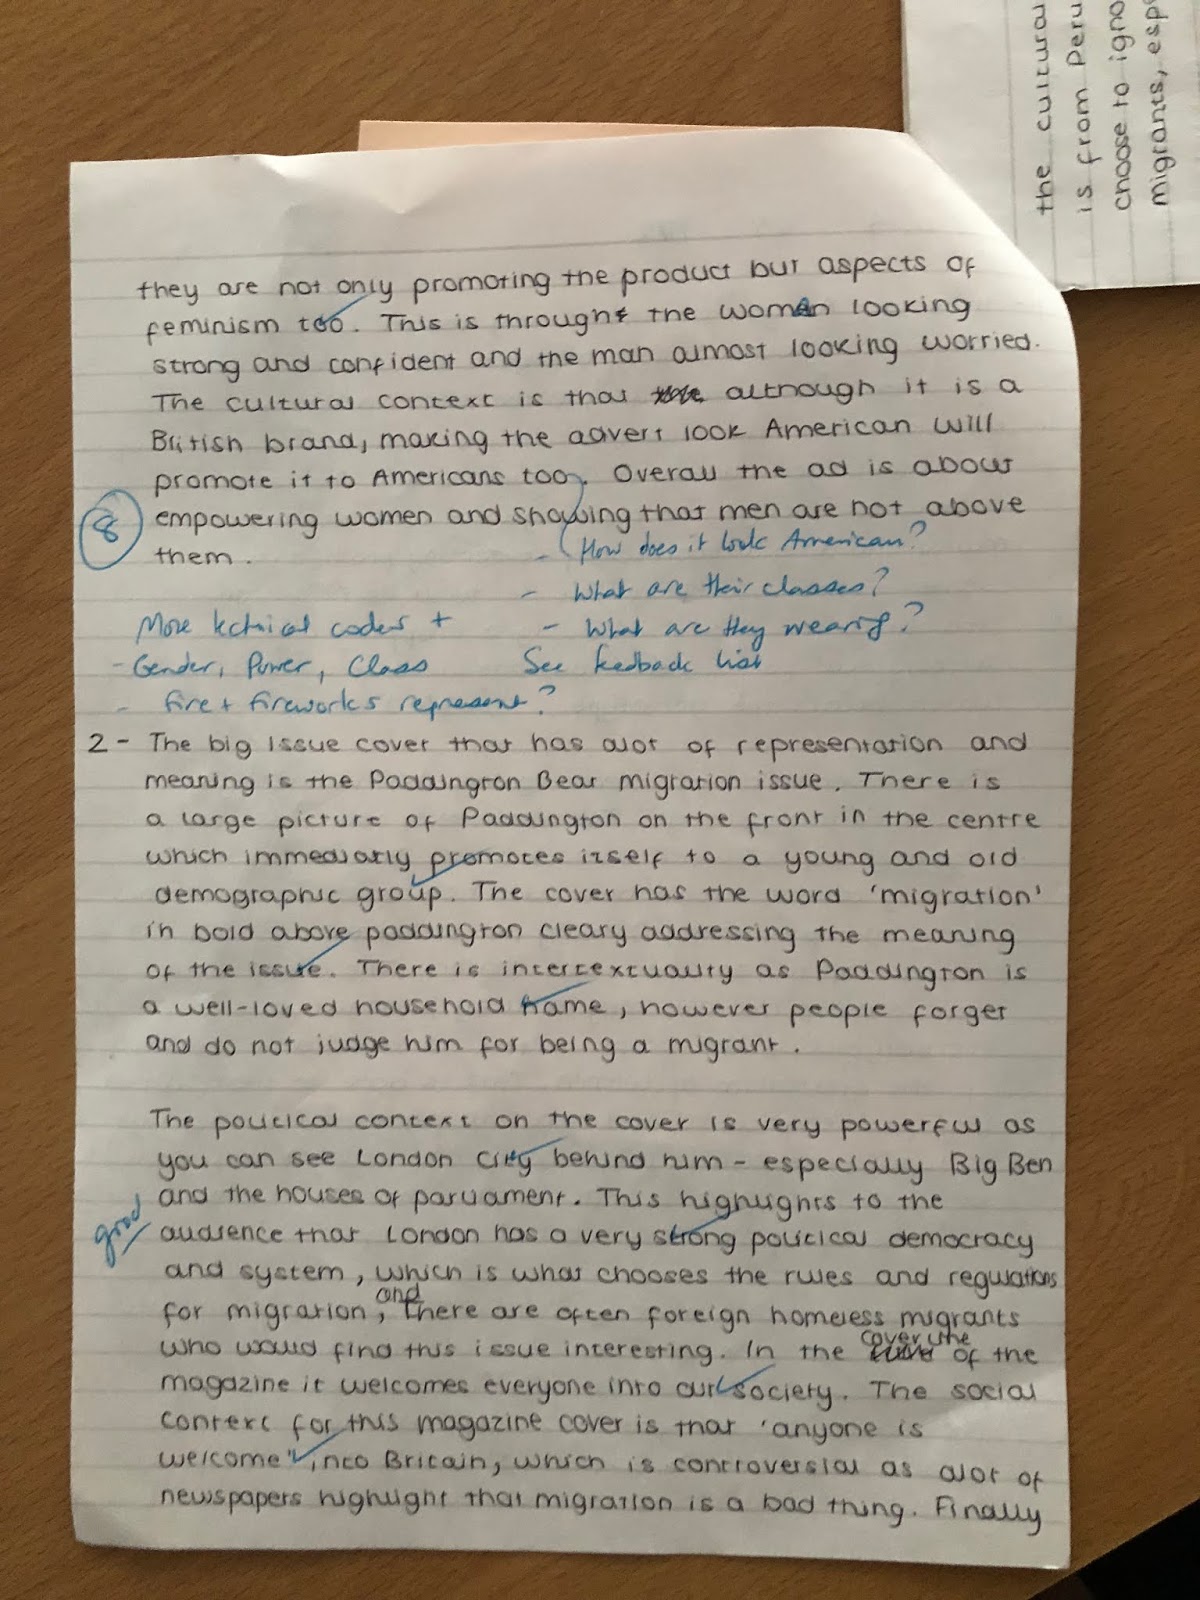 they are not only promoting the product but aspects of
feminism too. This is through the women looking
strong and confident and the man almost looking worried.
The cultural context is that although it is a
British brand, making the advert look American will
promote it to Americans too. Overall the ad is about
empowering women and showing that men are not above
them.
8
- How does it look American?
- What are their classes?
- What are they wearing?
See feedback list
More technical codes +
- Gender, Power, Class
- fire + fireworks represent?
2 - The big issue cover that has alot of representation and
meaning is the Paddington Bear migration issue. There is
a large picture of Paddington on the front in the centre
which immediatly promotes itself to a young and old
demographic group. The cover has the word 'migration'
in bold above paddington cleary addressing the meaning
of the issue. There is intertextuality as Paddington is
a well-loved household name, however people forget
and do not judge him for being a migrant.
The political context on the cover is very powerful as
you can see London City behind him - especially Big Ben
and the houses of parliament. This highlights to the
good
audience that London has a very strong political democracy
and system, which is what chooses the rules and regulations
for migration, and there are often foreign homeless migrants
who would find this issue interesting. In the cover line of the
magazine it welcomes everyone into our society. The social
context for this magazine cover is that 'anyone is
welcome' into Britain, which is controversial as alot of
newspapers highlight that migration is a bad thing. Finally
the cultural
is from Peru
choose to igno
migrants, esp